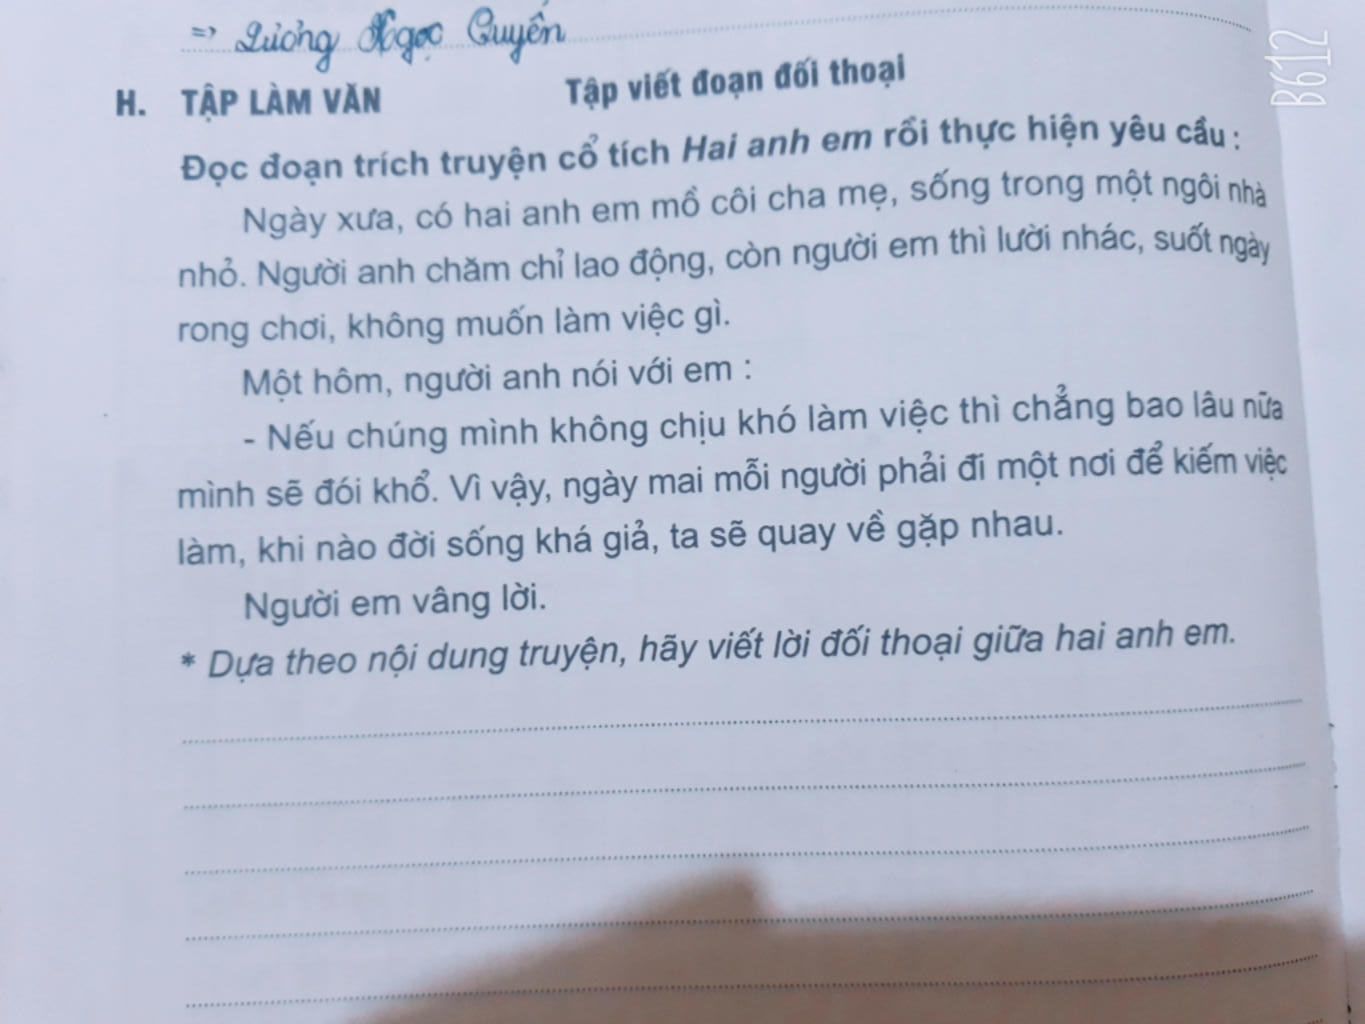 => Lương Ngọc Quyến
B612
H. TẬP LÀM VĂN Tập viết đoạn đối thoại
Đọc đoạn trích truyện cổ tích Hai anh em rồi thực hiện yêu cầu :
Ngày xưa, có hai anh em mồ côi cha mẹ, sống trong một ngôi nhà
nhỏ. Người anh chăm chỉ lao động, còn người em thì lười nhác, suốt ngày
rong chơi, không muốn làm việc gì.
Một hôm, người anh nói với em :
- Nếu chúng mình không chịu khó làm việc thì chẳng bao lâu nữa
mình sẽ đói khổ. Vì vậy, ngày mai mỗi người phải đi một nơi để kiếm việc
làm, khi nào đời sống khá giả, ta sẽ quay về gặp nhau.
Người em vâng lời.
* Dựa theo nội dung truyện, hãy viết lời đối thoại giữa hai anh em.